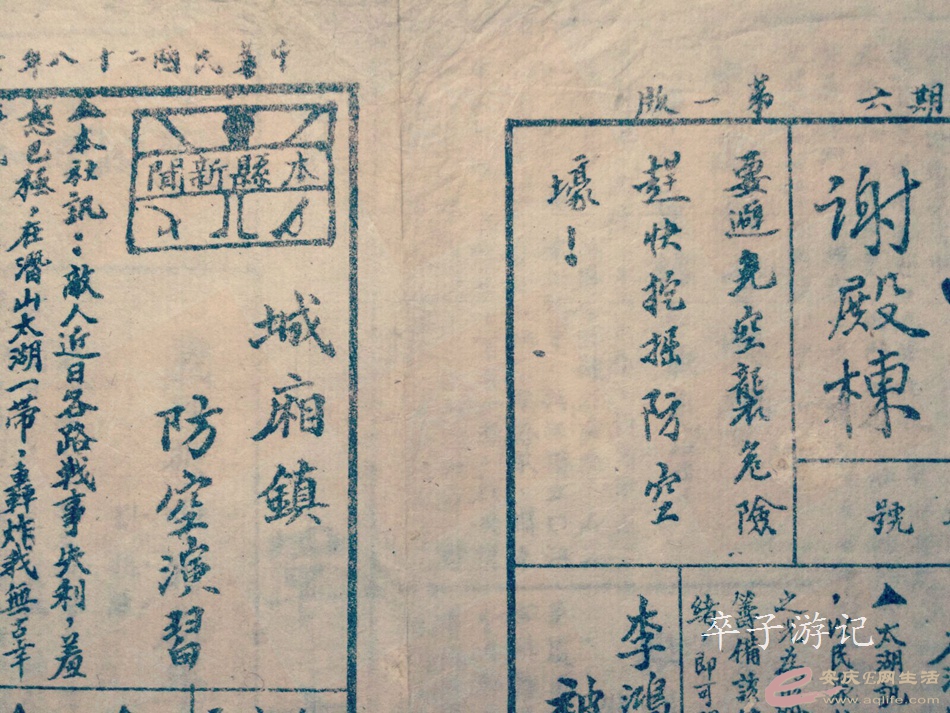 期六　第一版
謝殿棟
號
要避免空襲危險
趕快挖掘防空
壕！
▲太湖訊
籌備該
緒即可
李鴻
中華民國二十八年
本縣新聞
城廂鎮
防空演習
▲本社訊：敵人近日各路戰事失利，羞
怒已極，在潛山太湖一帶，轟炸我無古幸
卒子游记
安庆E网生活
www.aqlife.com